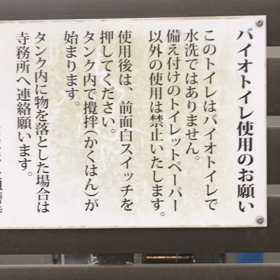 バイオトイレ使用のお願い
このトイレはバイオトイレで
水洗ではありません。
備え付けのトイレットペーパー
以外の使用は禁止いたします。
使用後は、前面白スイッチを
押してください。
タンク内で攪拌(かくはん)が
始まります。
タンク内に物を落とした場合は
寺務所へ連絡願います。